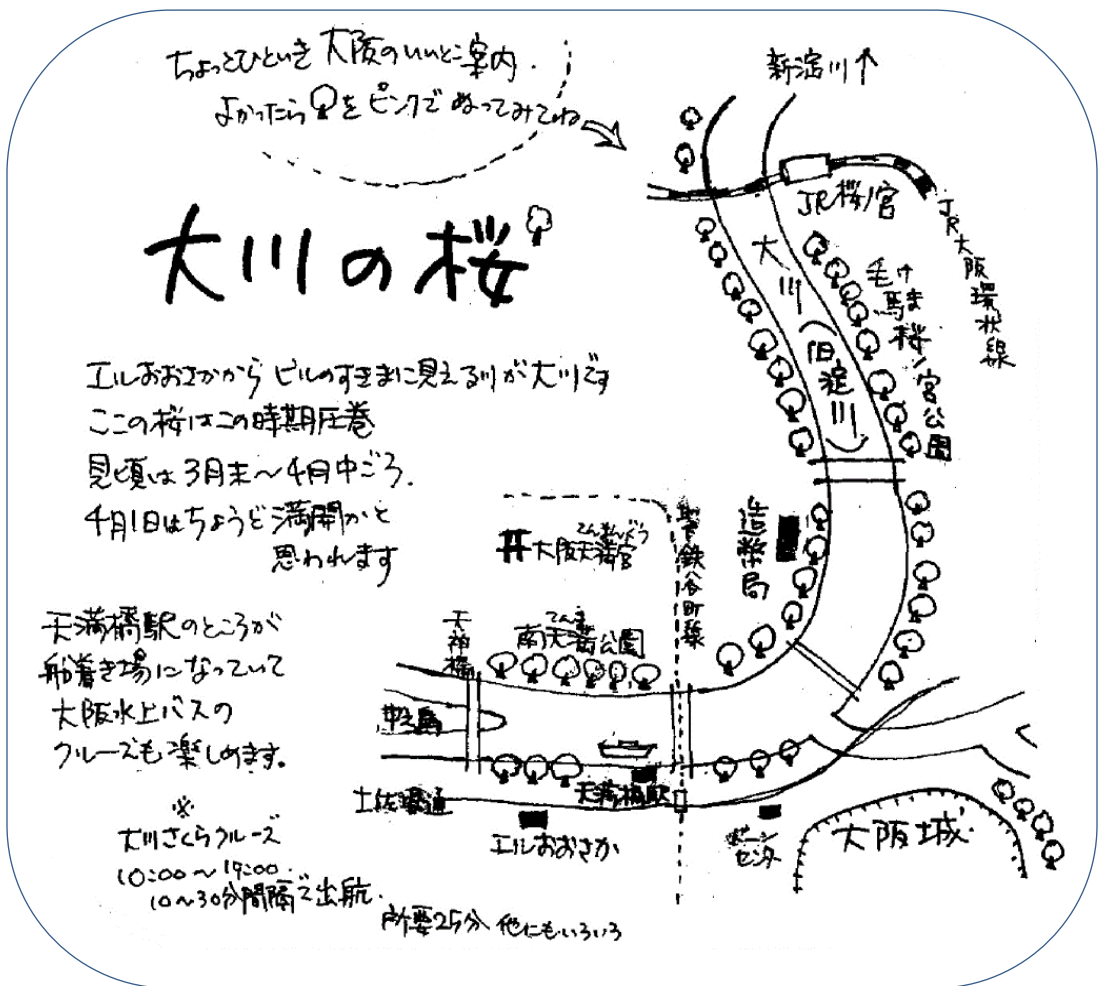 ちょっとひといき 大阪のいいとこ案内.
よかったら をピンクで ぬってみてね
大川の桜
エルおおさかから ビルのすきまに見える川が大川です
ここの桜はこの時期圧巻
見頃は3月末〜4月中ごろ.
4月1日はちょうど満開かと
思われます
天満橋駅のところが
船着き場になっていて
大阪水上バスの
クルーズも楽しめます。
※
大川さくらクルーズ
10:00〜19:00.
10〜30分間隔で出航.
所要25分 他にもいろいろ
新淀川↑
JR桜ノ宮
JR大阪環状線
大川(旧淀川)
けま
毛馬桜ノ宮公園
造幣局
地下鉄谷町線
大阪天満宮
てんま
南天満公園
天神橋
中之島
天満橋駅
土佐堀通
エルおおさか
センター
大阪城